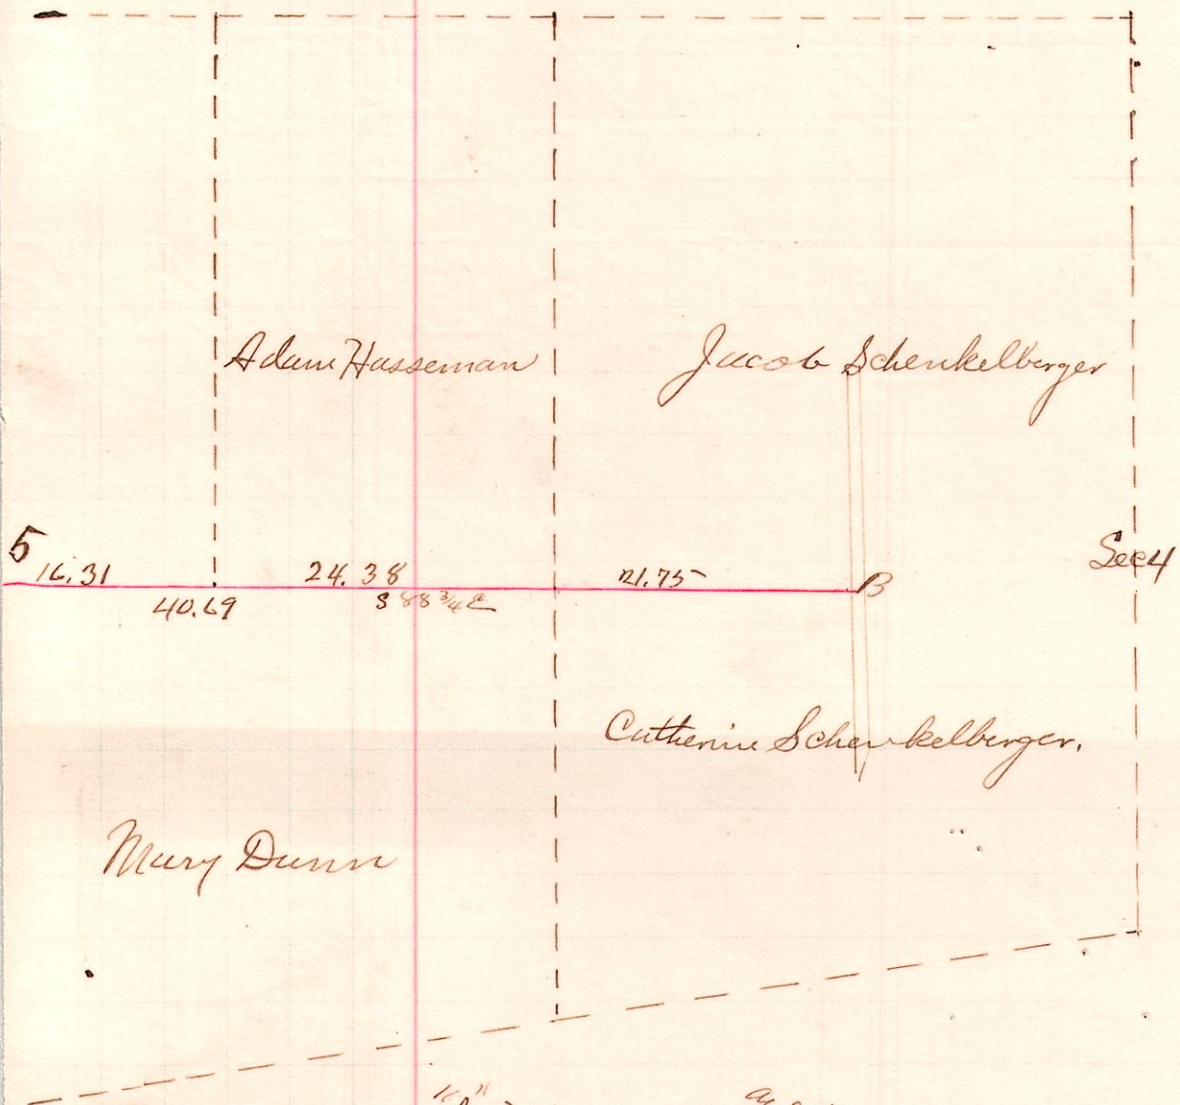 Adam Hasseman
Jacob Schenkelberger
5
16.31
24.38
21.75
B
Sec 4
40.69
S 88 3/4 E
Catherine Schenkelberger.
Mary Dunn